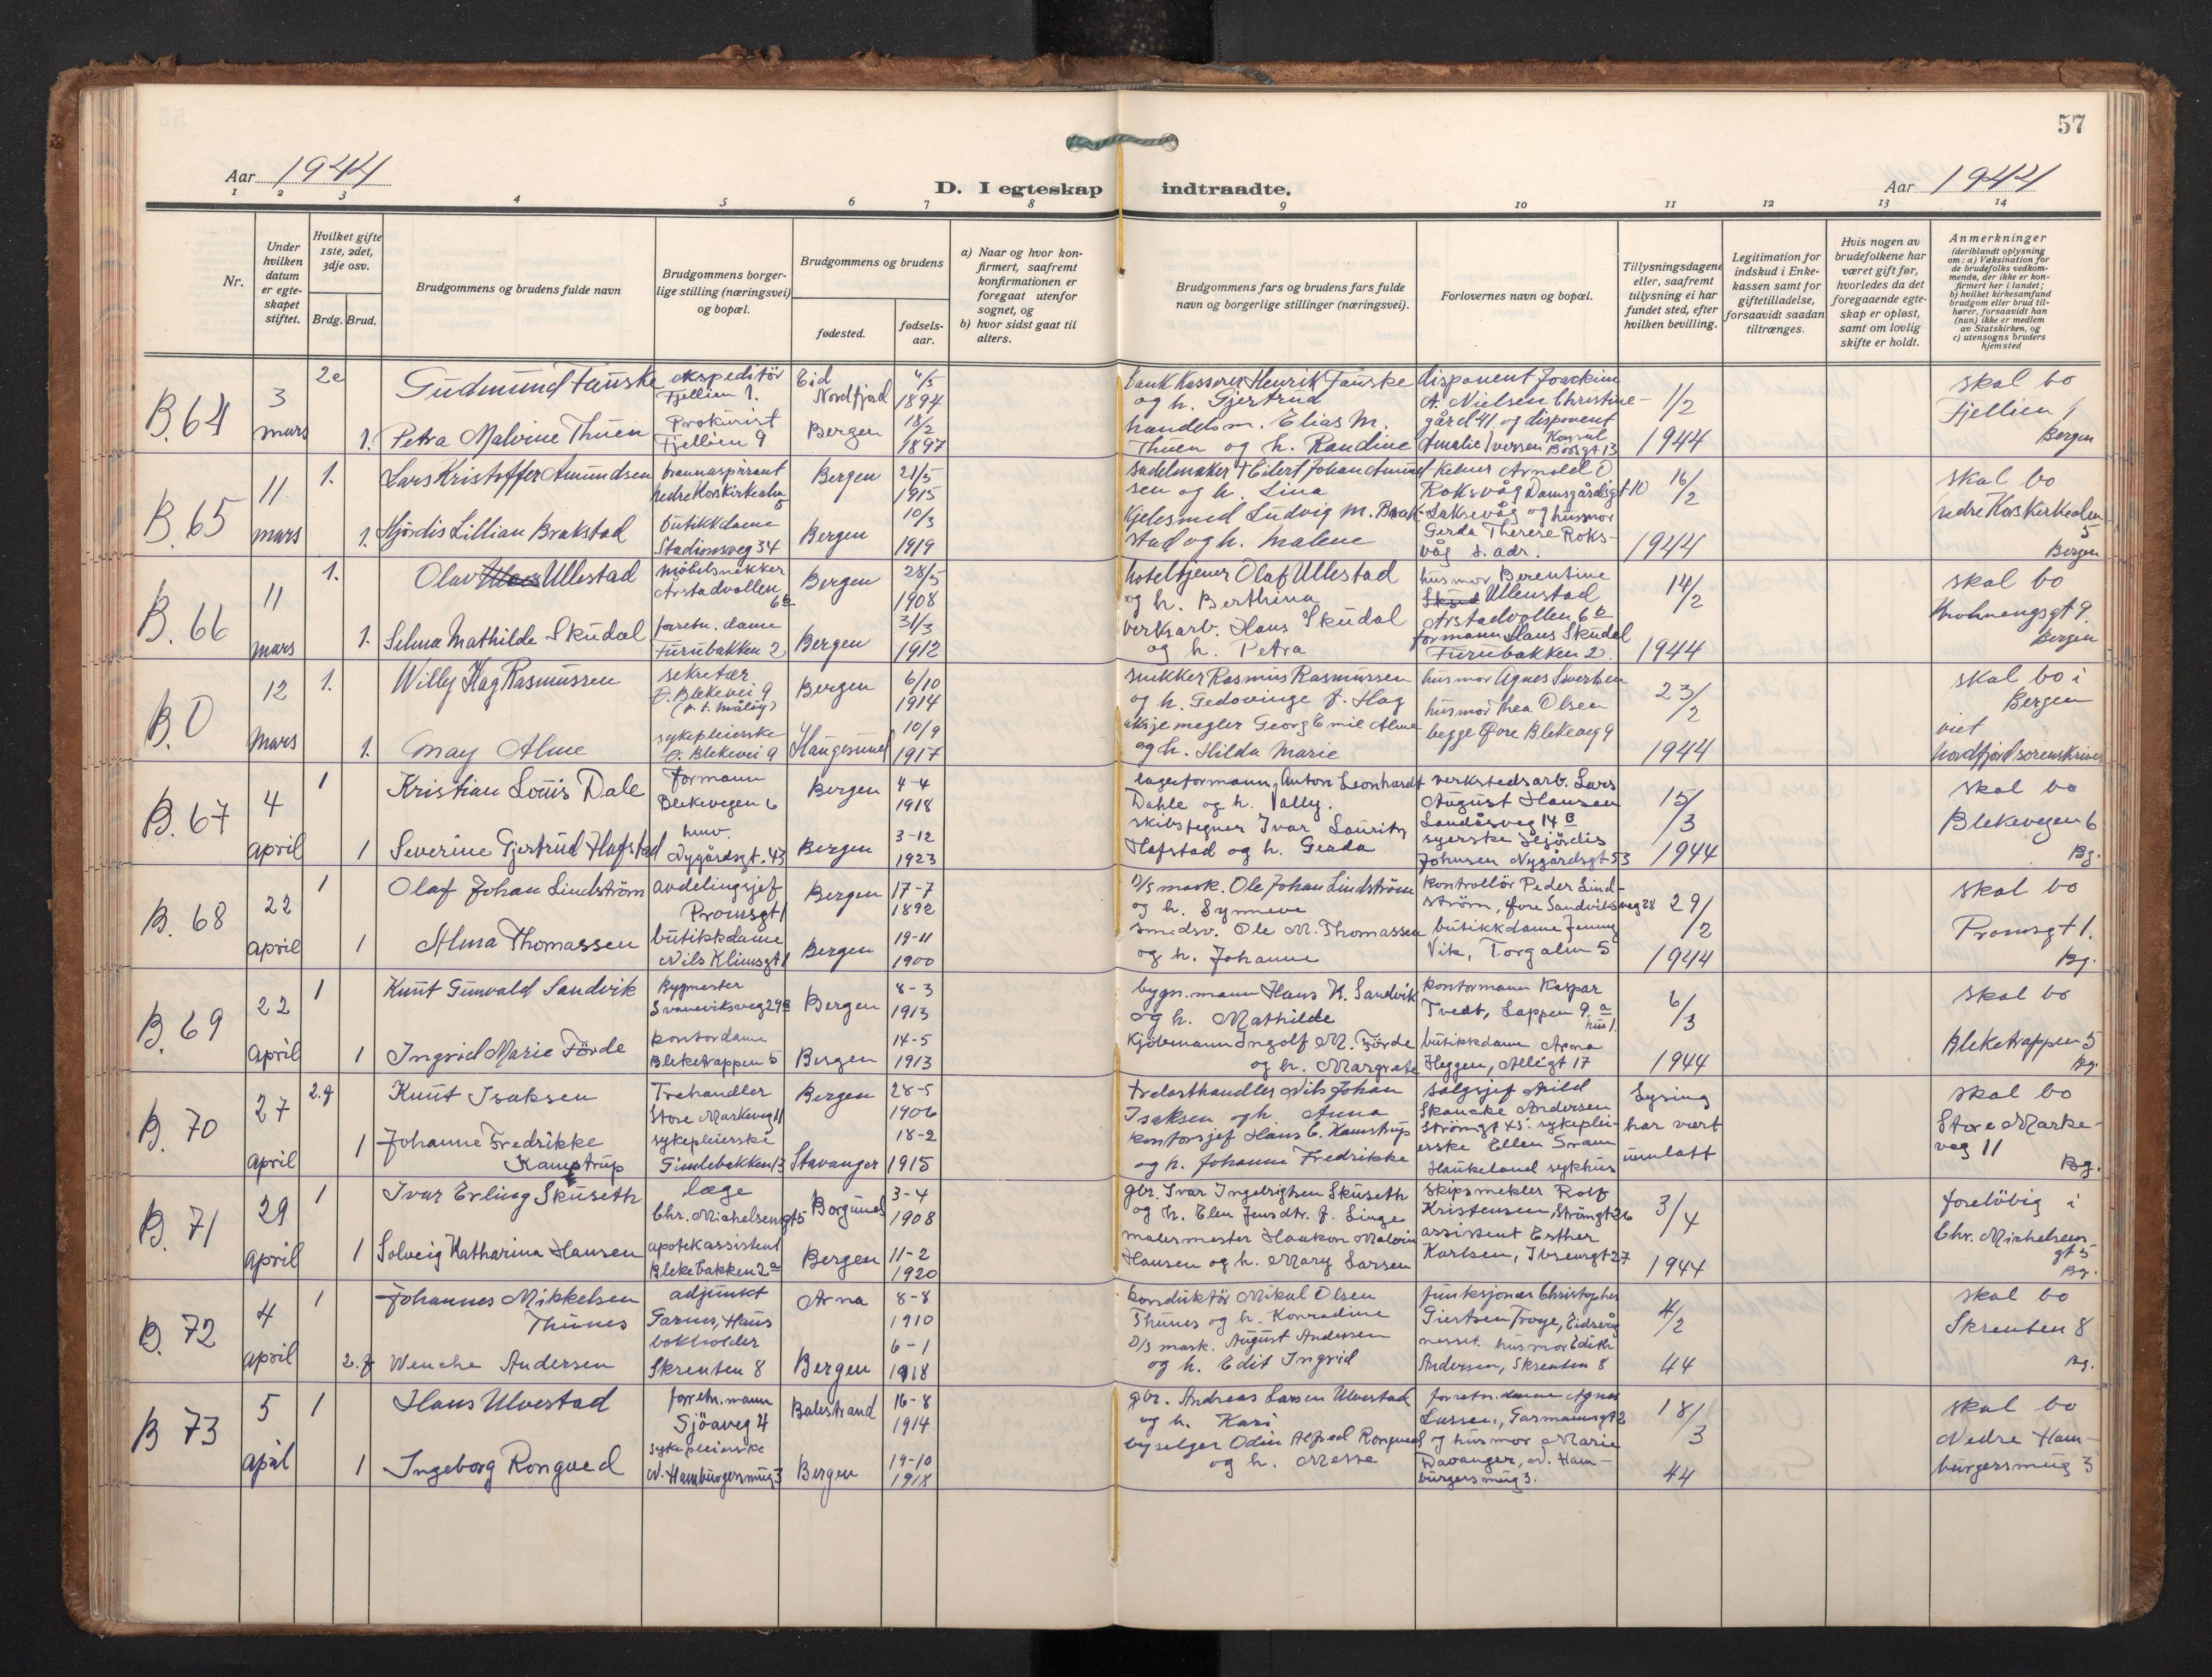 57
Aar 1944
D. I egteskap indtraadte.
Aar 1944
1 2 3 4 5 6 7 8 9 10 11 12 13 14
Nr.
Under hvilken datum er egteskapet stiftet.
Hvilket gifte 1ste, 2det, 3dje osv.
Brdg. Brud.
Brudgommens og brudens fulde navn
Brudgommens borgerlige stilling (næringsvei) og bopæl.
Brudgommens og brudens
fødested.
fødselsaar.
a) Naar og hvor konfirmert, saafremt konfirmationen er foregaat utenfor sognet, og
b) hvor sidst gaat til alters.
Brudgommens fars og brudens fars fulde navn og borgerlige stillinger (næringsvei).
Forlovernes navn og bopæl.
Tillysningsdagene eller, saafremt tillysning ei har fundet sted, efter hvilken bevilling.
Legitimation for indskud i Enkekassen samt for giftetilladelse, forsaavidt saadan tiltrænges.
Hvis nogen av brudefolkene har været gift før, hvorledes da det foregaaende egteskap er opløst, samt om lovlig skifte er holdt.
Anmerkninger
(deriblandt oplysning om: a) Vaksination for de brudefolks vedkommende, der ikke er konfirmert her i landet; b) hvilket kirkesamfund brudgom eller brud tilhører, forsaavidt han (hun) ikke er medlem av Statskirken, og c) utensogns bruders hjemsted
B. 64
3 mars
2e
Gudmund Fauske
ekspeditör
Fjellien 1.
Eid Nordfjord
4/5 1894
bank Kasserer Henrik Fauske
og h. Gjertrud
disponent Joackim
A. Nielsen Christine-
gård 41 og disponent
1/2 1944
skal bo
Fjellien 1
Bergen
1.
Petra Malvine Thuen
Prokurist
Fjellien 9
Bergen
18/2 1897
handelsm. Elias M.
Thuen og h. Randine
Amalie Iversen Konsul
Börsgt 13
B. 65
11 mars
1.
Lars Kristoffer Amundsen
brannaspirant
Nedre Korskirkealm 5
Bergen
21/5 1915
sadelmaker † Eilert Johan Amund
sen og h. Lina
Kelner Arnold O
Roksvåg Damsgårdsgt 10
Laksevåg og husmor
16/2 1944
skal bo
nedre Korskirkealm
5
Bergen
1.
Hjördis Lillian Brakstad
butikkdame
Stadionsveg 34
Bergen
10/3 1919
Kjelesmed Ludvig M. Brak-
stad og h. Malene
Gerda Therese Roks-
våg s. adr.
B. 66
11 mars
1.
Olav Ullestad
möbelsnekker
Årstadvollen
6b
Bergen
28/5 1908
hoteltjener Olaf Ullestad
og h. Berthina
husmor Berentine
Ullenstad
Årstadvollen 6b
14/2 1944
skal bo
Krohnengsgt 9.
Bergen
1.
Selma Mathilde Skudal
forretn. dame
Furubakken 2
Bergen
31/3 1912
verksarb. Hans Skudal
og h. Petra
formann Hans Skudal
Furubakken 2.
B. 0
12 mars
1.
Willy Hag Rasmussen
sekretær
Ö. Blekevei 9
(p.t. Måløy)
Bergen
6/10 1914
snikker Rasmus Rasmussen
og h. Gedovinge f. Hag
husmor Agnes
husmor Thea Olsen
begge Øvre Blekeveg 9
23/2 1944
skal bo i
Bergen
viet
Nordfjord sorenskriver
1.
May Alme
sykepleierske
Ö. Blekevei 9
Haugesund
10/9 1917
aksjemegler Georg Emil Alme
og h. Hilda Marie
B. 67
4 april
1
Kristian Louis Dale
Formann
Blekevegen 6
Bergen
4-4 1918
lagerformann Anton Leonhardt
Dahle og h. Vally.
verkstedsarb. Lars
August Hansen
Landåsveg 14 B
15/3 1944
skal bo
Blekevegen 6
Bg.
1
Severine Gjertrud Hafstad
husv.
Nygårdsgt. 43
Bergen
3-12 1923
skibstegner Ivar Lauritz
Hafstad og h. Gerda
syerske Hjördis
Johnsen Nygårdsgt 53
B. 68
22 april
1
Olaf Johan Lindström
avdelingsjef
Promsgt 1
Bergen
17-7 1892
D/S mask. Ole Johan Lindström
og h. Synneve
kontrollör Peder Lind-
ström, Øvre Sandviksveg 28
29/2 1944
skal bo
Promsgt 1.
Bg.
1
Alma Thomassen
butikkdame
Nils Klimsgt 1
Bergen
19-11 1900
smedsv. Ole M. Thomassen
og h. Johanne
butikkdame Jenny
Vik, Torgalm 5
B. 69
22 april
1
Knut Gunvald Sandvik
Bygmester
Svaneviksveg 29 B
Bergen
8-3 1913
bygn. mann Hans K. Sandvik
og h. Mathilde
kontormann Kaspar
Tvedt, Lappen 9 a
hus 1.
6/3 1944
skal bo
Bleketrappen 5
Bg.
1
Ingrid Marie Förde
kontordame
Bleketrappen 5
Bergen
14-5 1913
Kjöbmann Ingolf M. Förde
og h. Margrete
butikkdame Anna
Heggen, Allégt 17
B. 70
27 april
2.g
Knut Isaksen
Trehandler
Store Markeveg 11
Bergen
28-5 1906
trelasthandler Nils Johan
Isaksen og h. Anna
salgsjef Arild
Skancke Andersen
Strömgt 45. sykeplei-
Lysing
har vært
unnlatt
skal bo
Store Marke-
veg 11
Bg.
1
Johanne Fredrikke
Kamstrup
sykepleierske
Gimlebakken 13
Stavanger
18-2 1915
kontorsjef Hans C. Kamstrup
og h. Johanne Fredrikke
erske Ellen Svam
Haukeland sykehus
B. 71
29 april
1
Ivar Erling Skuseth
læge
Chr. Michelsensgt 5
Borgund
3-4 1908
gbr. Ivar Ingebrigtsen Skuseth
og h. Elen Jensdtr. f. Linge
skipsmekler Rolf
Kristensen, Strömgt 26
3/4 1944
foreløbig i
Chr. Michelsens-
gt 5
Bg.
1
Solveig Katharina Hansen
apotekassistent
Blekebakken 2a
Bergen
11-2 1920
malermester Haakon Malvin
Hansen og h. Mary Larsen
assistent Esther
Karlsen, Ibsensgt 27
B. 72
4 april
1
Johannes Mikkelsen
Thunes
adjunkt
Garnes, Haus
Arna
8-8 1910
konduktör Mikal Olsen
Thunes og h. Konradine
funksjonær Christopher
Giertsen Troye, Eidsvåg
nesset. husmor Edith
4/2 44
skal bo
Skrenten 8
Bg.
2.g
Wenche Andersen
bokholder
Skrenten 8
Bergen
6-1 1918
D/S mask. August Andersen
og h. Edit Ingrid
Andersen, Skrenten 8
B 73
5 april
1
Hans Ulvestad
forretn. mann
Sjöaveg 4
Balestrand
16-8 1914
gbr. Andreas Larsen Ulvestad
og h. Kari
forretn. dame Agnes
Lassen, Garmannsgt 2
og husmor Marie
18/3 44
skal bo
Nedre Ham-
burgersmug 3
1
Ingeborg Rongved
sykepleierske
N. Hamburgersmug 3
Bergen
19-10 1918
byselger Odin Alfred Rongved
og h.
Davanger, N. Ham-
burgersmug 3.